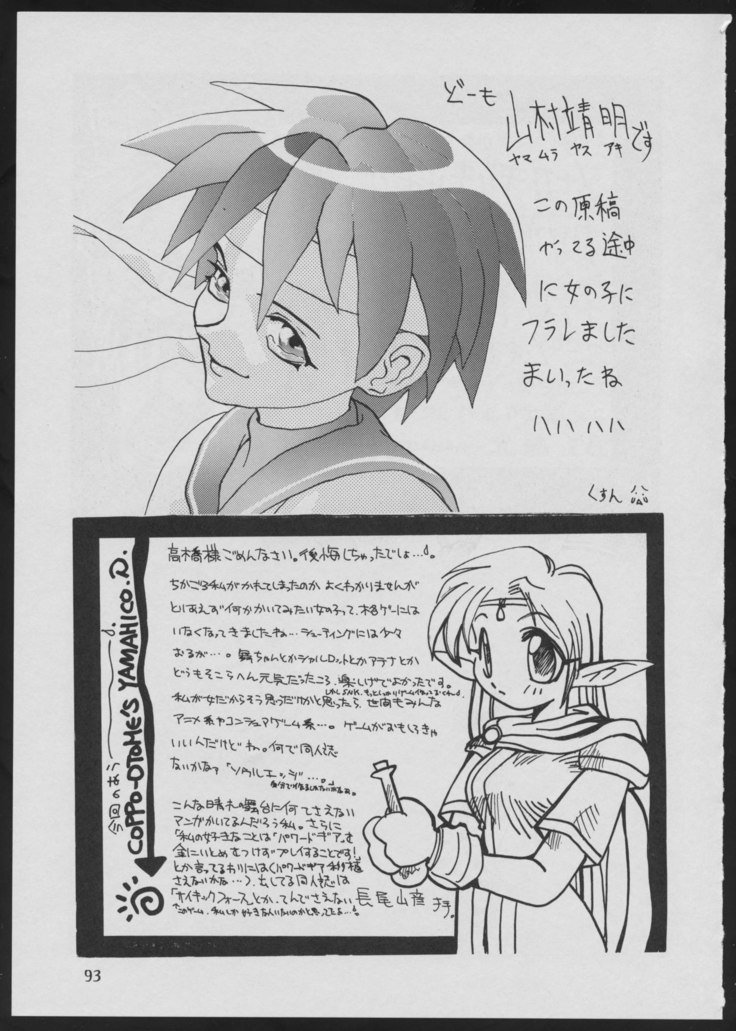 どーも
山村靖明です
ヤマ ムラ ヤス アキ
この原稿
やってる途中
に女の子に
フラレました
まいったね
ハハ ハハ
くすん
高橋様ごめんなさい。後悔しちゃったでしょ…。
ちかごろ私がかれてしまったのか よくわかりませんが
とりあえず何かかいてみたい女の子って、格ゲーには
いなくなってきましたね…シューティングには少々
おるが…。舞ちゃんとかシャルロットとかアテナとか
どうもそこらへん元気だったころ、楽しげでよかったです。
私が女だからそう思うだけかと思ったら、世間もみんな
アニメ系やコンシュアゲーム系…。ゲームがおもしろきゃ
いいんだけどね。何で同人誌
ないかなァ「ソウルエッヂ…。」
こんな晴れの舞台に何てさえない
マンガかいてるんだろう私。さらに
「私の好きなことは「パワードギア」を
金にいとめをつけずプレイすることです!」
とか言ってるわりにはく(パワードギア
さえないかな…)出してる同人誌は
「サイキックフォース」とか、てんでさえない
「このゲーム、私しか好きな人いないのかと思ってたよ…。」
長尾山彦 拝。
今回のおう――。
COPPO-OTOME'S YAMAHICO.D.
93